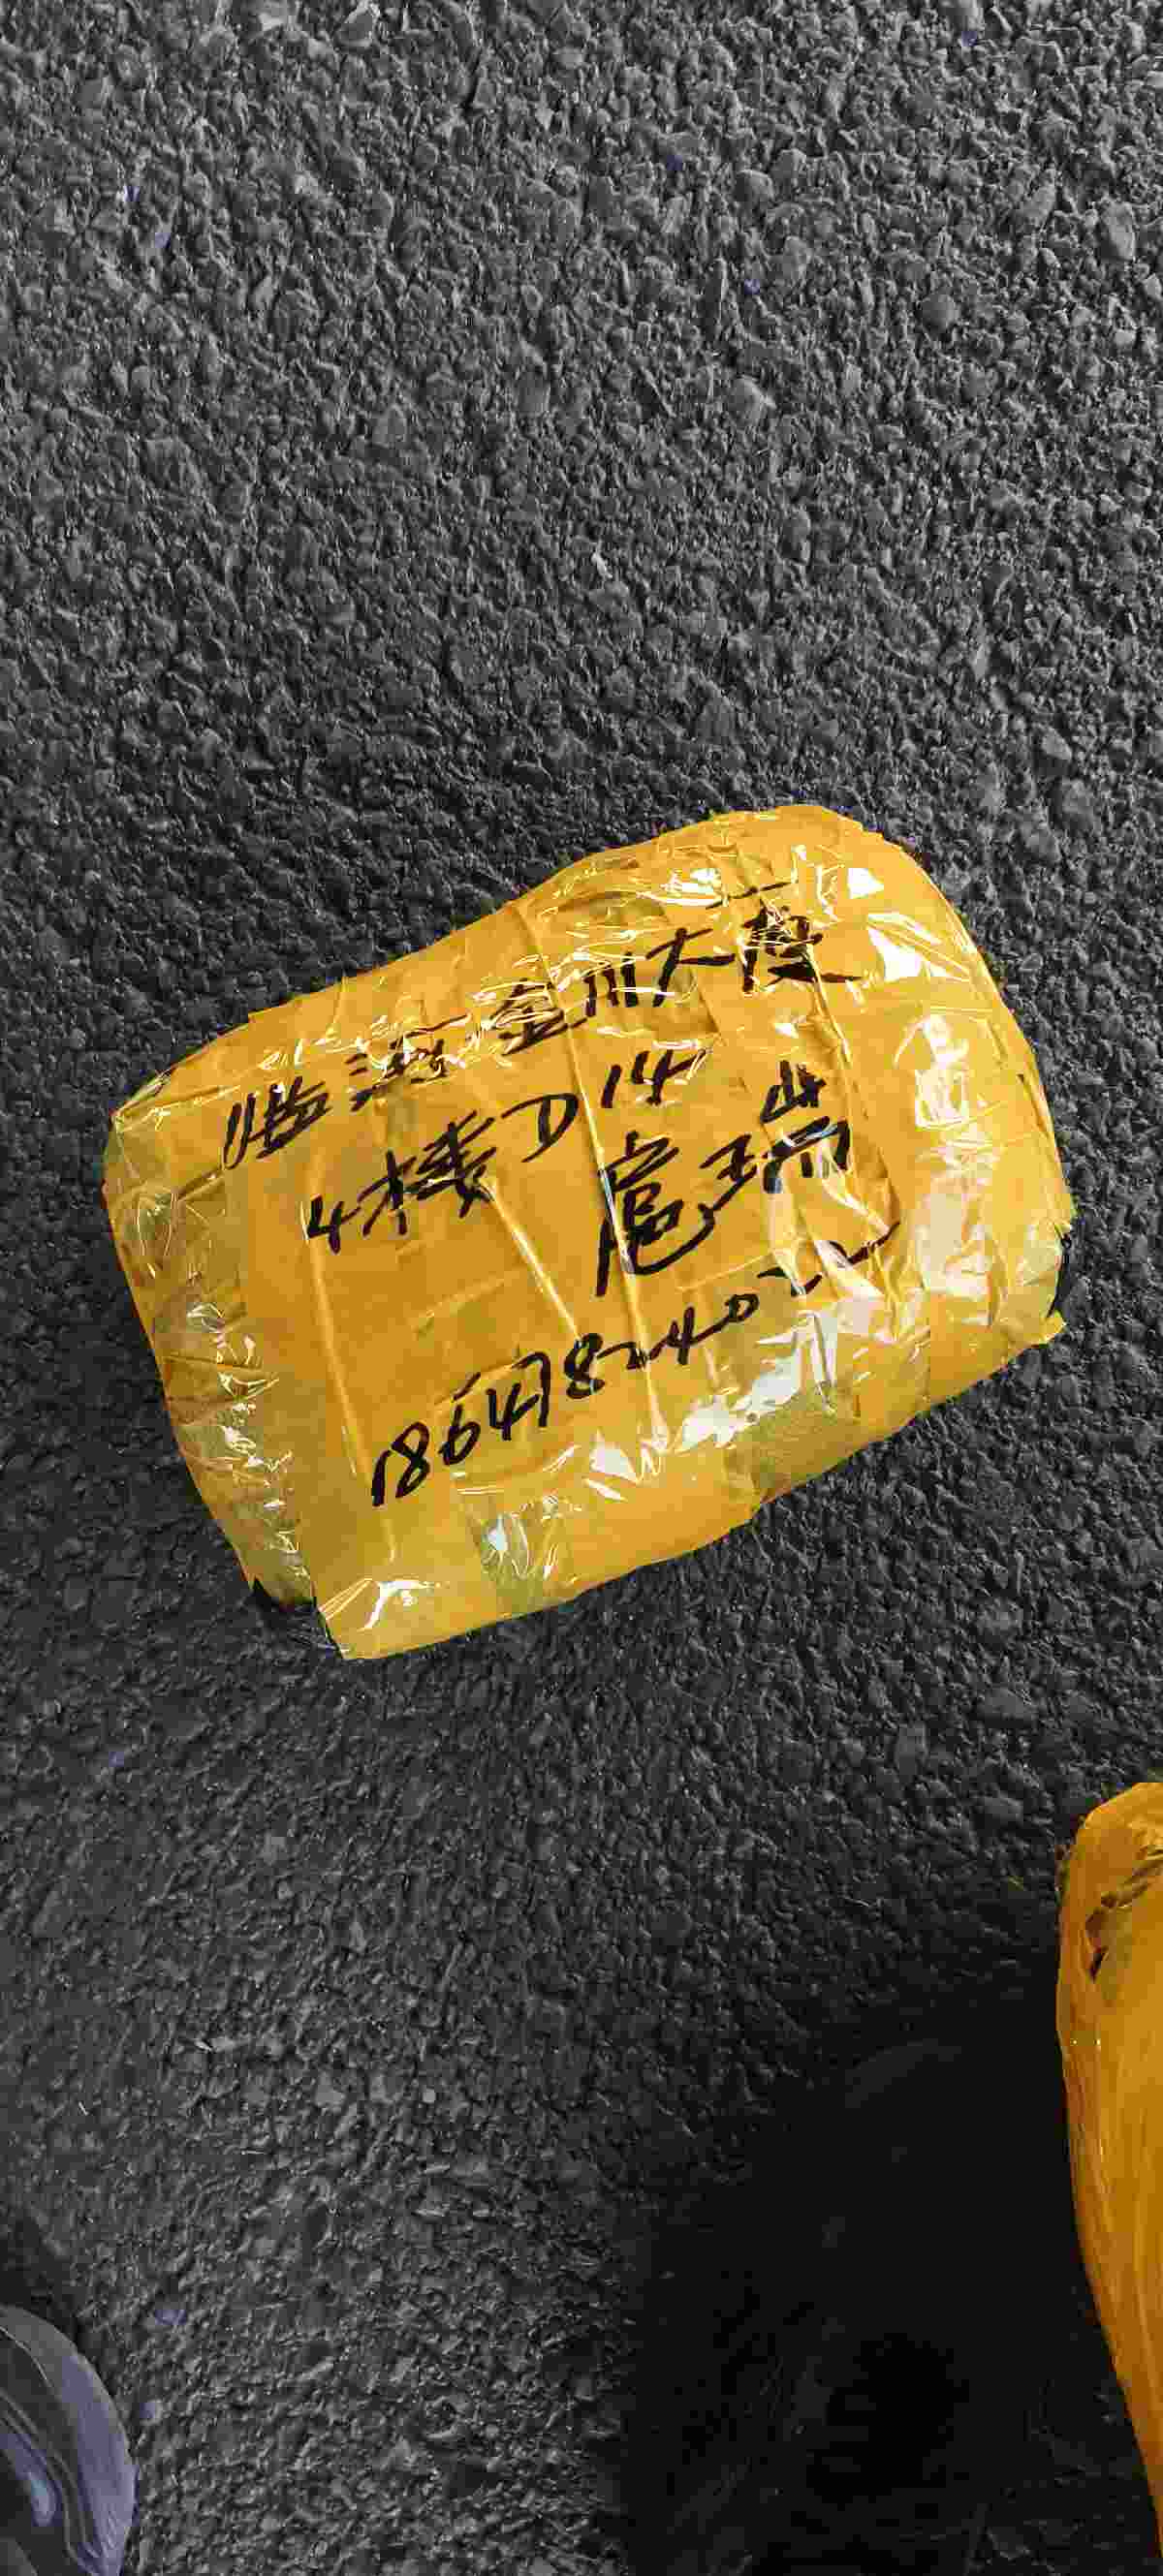 临沂金川大厦
4楼D14
扈瑞
18647824022